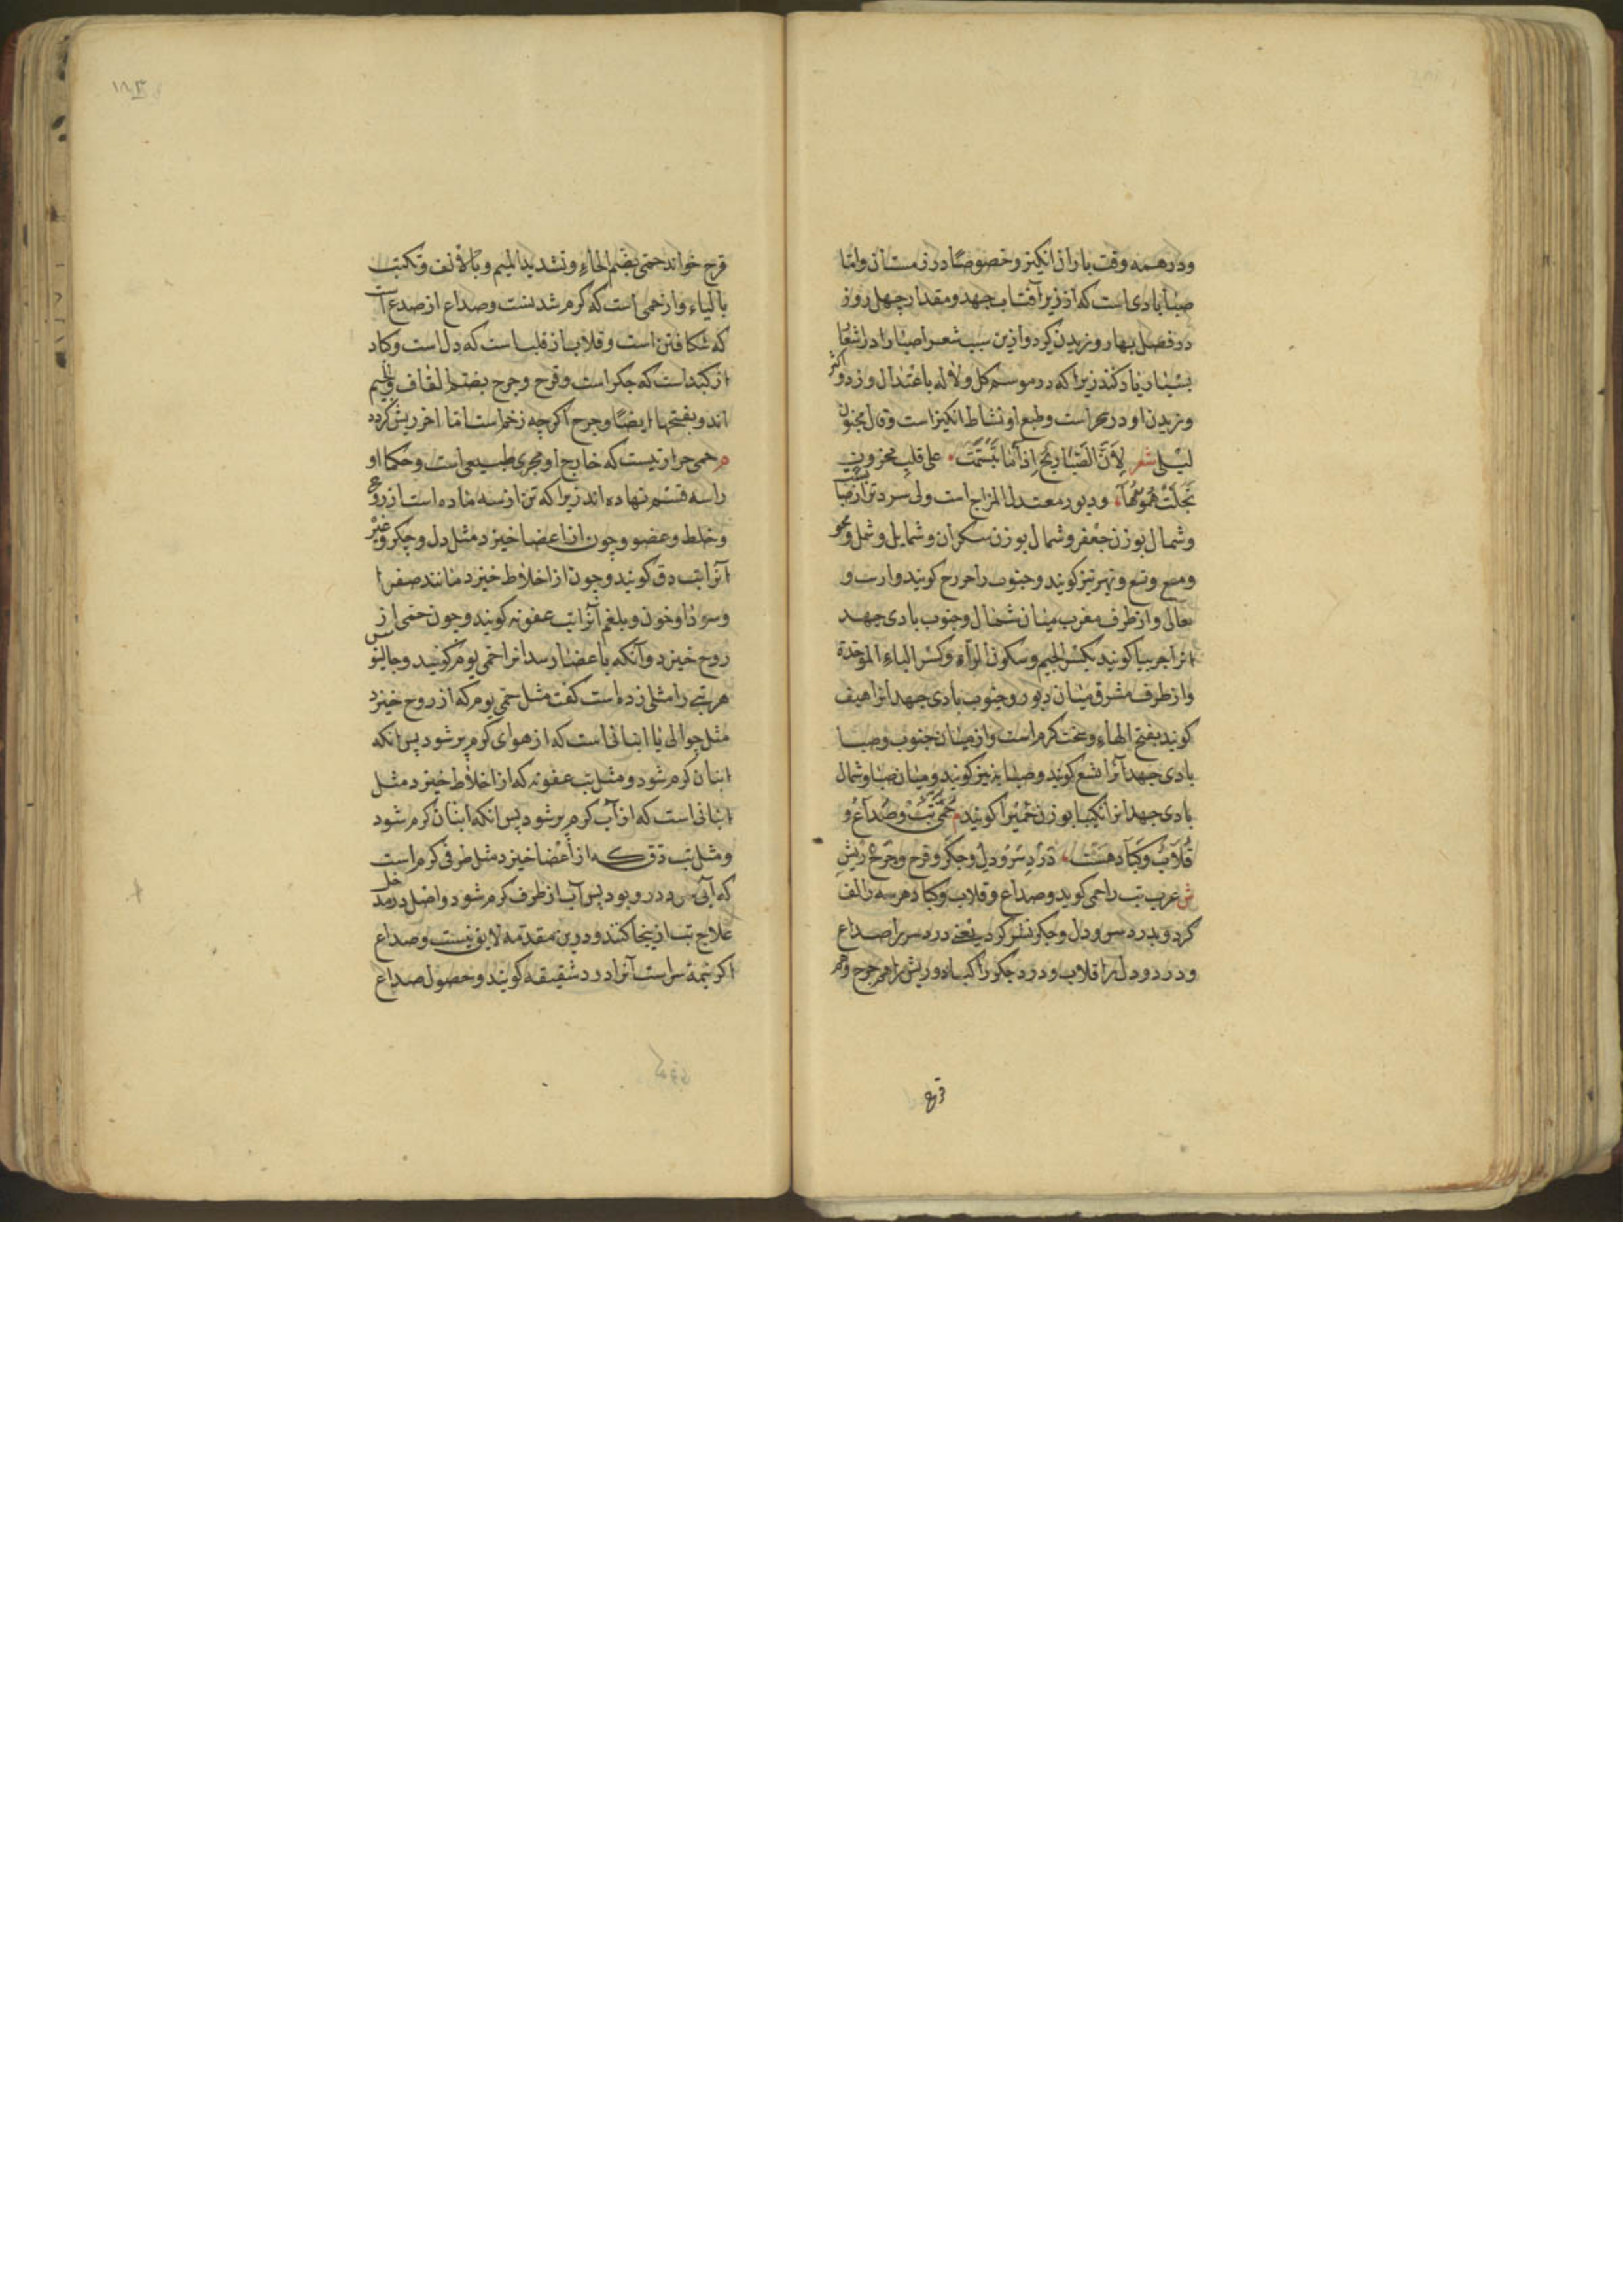 ودر همه وقت باران انکیز و خصوصًا در زمستان واما
صبا بادی است که از زیر آفتاب جهد و مقدار چهل روز
در فصل بهار وزیدن کیرد و ازین سبب شعرا صبا را در اشعار
بسیار یاد کنند زیرا که در موسم کل و لاله باعتدال وزد و اکثر
وزیدن او در سحر است و طبع او نشاط انکیز است و قال مجنون
لیلی شعر لِاَنَّ الصَّبَا رِیْحٌ اِذَا مَا تَبَسَّمَتْ علی قلب محزون
تجلت همومها ودبور معتدل المزاج است ولی سردتر از صبا نسبت
وشمال بوزن جعفر و شمال بوزن سکران و شمایل و شمل و محو
ومسع و نسع و نهر نیز کویند وجنوب را حررح کویند وارب و
نعالی واز طرف مغرب میان شمال وجنوب بادی جهد
انرا جربیا کویند بکسر الجیم وسکون الراء وکسر الباء الموحدة
واز طرف مشرق میان دبور وجنوب بادی جهد انرا هیف
کویند بفتح الهاء و سخت کرم است واز میان جنوب وصبا
بادی جهد آنرا نسع کویند وصبا بر نیز کویند ومیان صبا وشمال
بادی جهد انرا نکیبا بوزن حمیرا کویند م حُمّی تَبْ وصُدَاعْ و
قُلَابْ وکُبَاد هَسْت دَرْدِ سَرْ و دِلْ و جکر و قرح و جرح ریش
ش عرب تب را حمی کوید وصداع وقلاب وکباد هر سه را الف
کرد و بدرد سر و دل و جکر تفسیر کرد یعنی درد سر را صداع
ودرد دل را قلاب و درد جکر را کباد و ریش را هم جرح وهم
قرح
قرح خواند حمّی بضم الحاء وتشدید المیم وبالالف وتکتب
بالیاء واز حمی است که کرم شدنست وصداع از صدع است
که شکافتن است وقلاب از قلب است که دل است وکباد
از کبد است که جکر است وقرح وجرح بضم القاف والجیم
اند وبفتحها ایضًا وجرح اکرچه زخم است اما اخر ریش کردد
م حمی حرارتیست که خارج او مجری طبیعی است وحکما او
را سه قسم نهاده اند زیرا که تن از سه ماده است از روح
وخلط وعضو وچون از اعضا خیزد مثل دل و جکر وغیر
آنرا تب دق کویند وچون از اخلاط خیزد مانند صفرا
وسودا وخون و بلغم آنرا تب عفونه کویند وچون حمی از
روح خیزد وآنکه باعضا رسد انرا حمی یوم کویند وجالینوس
هر تبی را مثلی زده است کفت مثل حمی یوم که از روح خیزد
مثل جوالی یا انبانی است که از هوای کرم پر شود پس انکه
انبان کرم شود ومثل تب عفونه که از اخلاط خیزد مثل
انبانی است که از آب کرم پر شود پس انکه انبان کرم شود
ومثل تب دق که از أعضا خیزد مثل طرفی کرم است
که آبی سرد درو بود پس آب از طرف کرم شود واصل در مدخل
علاج تب از ینجا کنند ودرین مقدمه لایق نیست وصداع
اکر نیمه سر است آنرا درد شقیقه کویند وحصول صداع